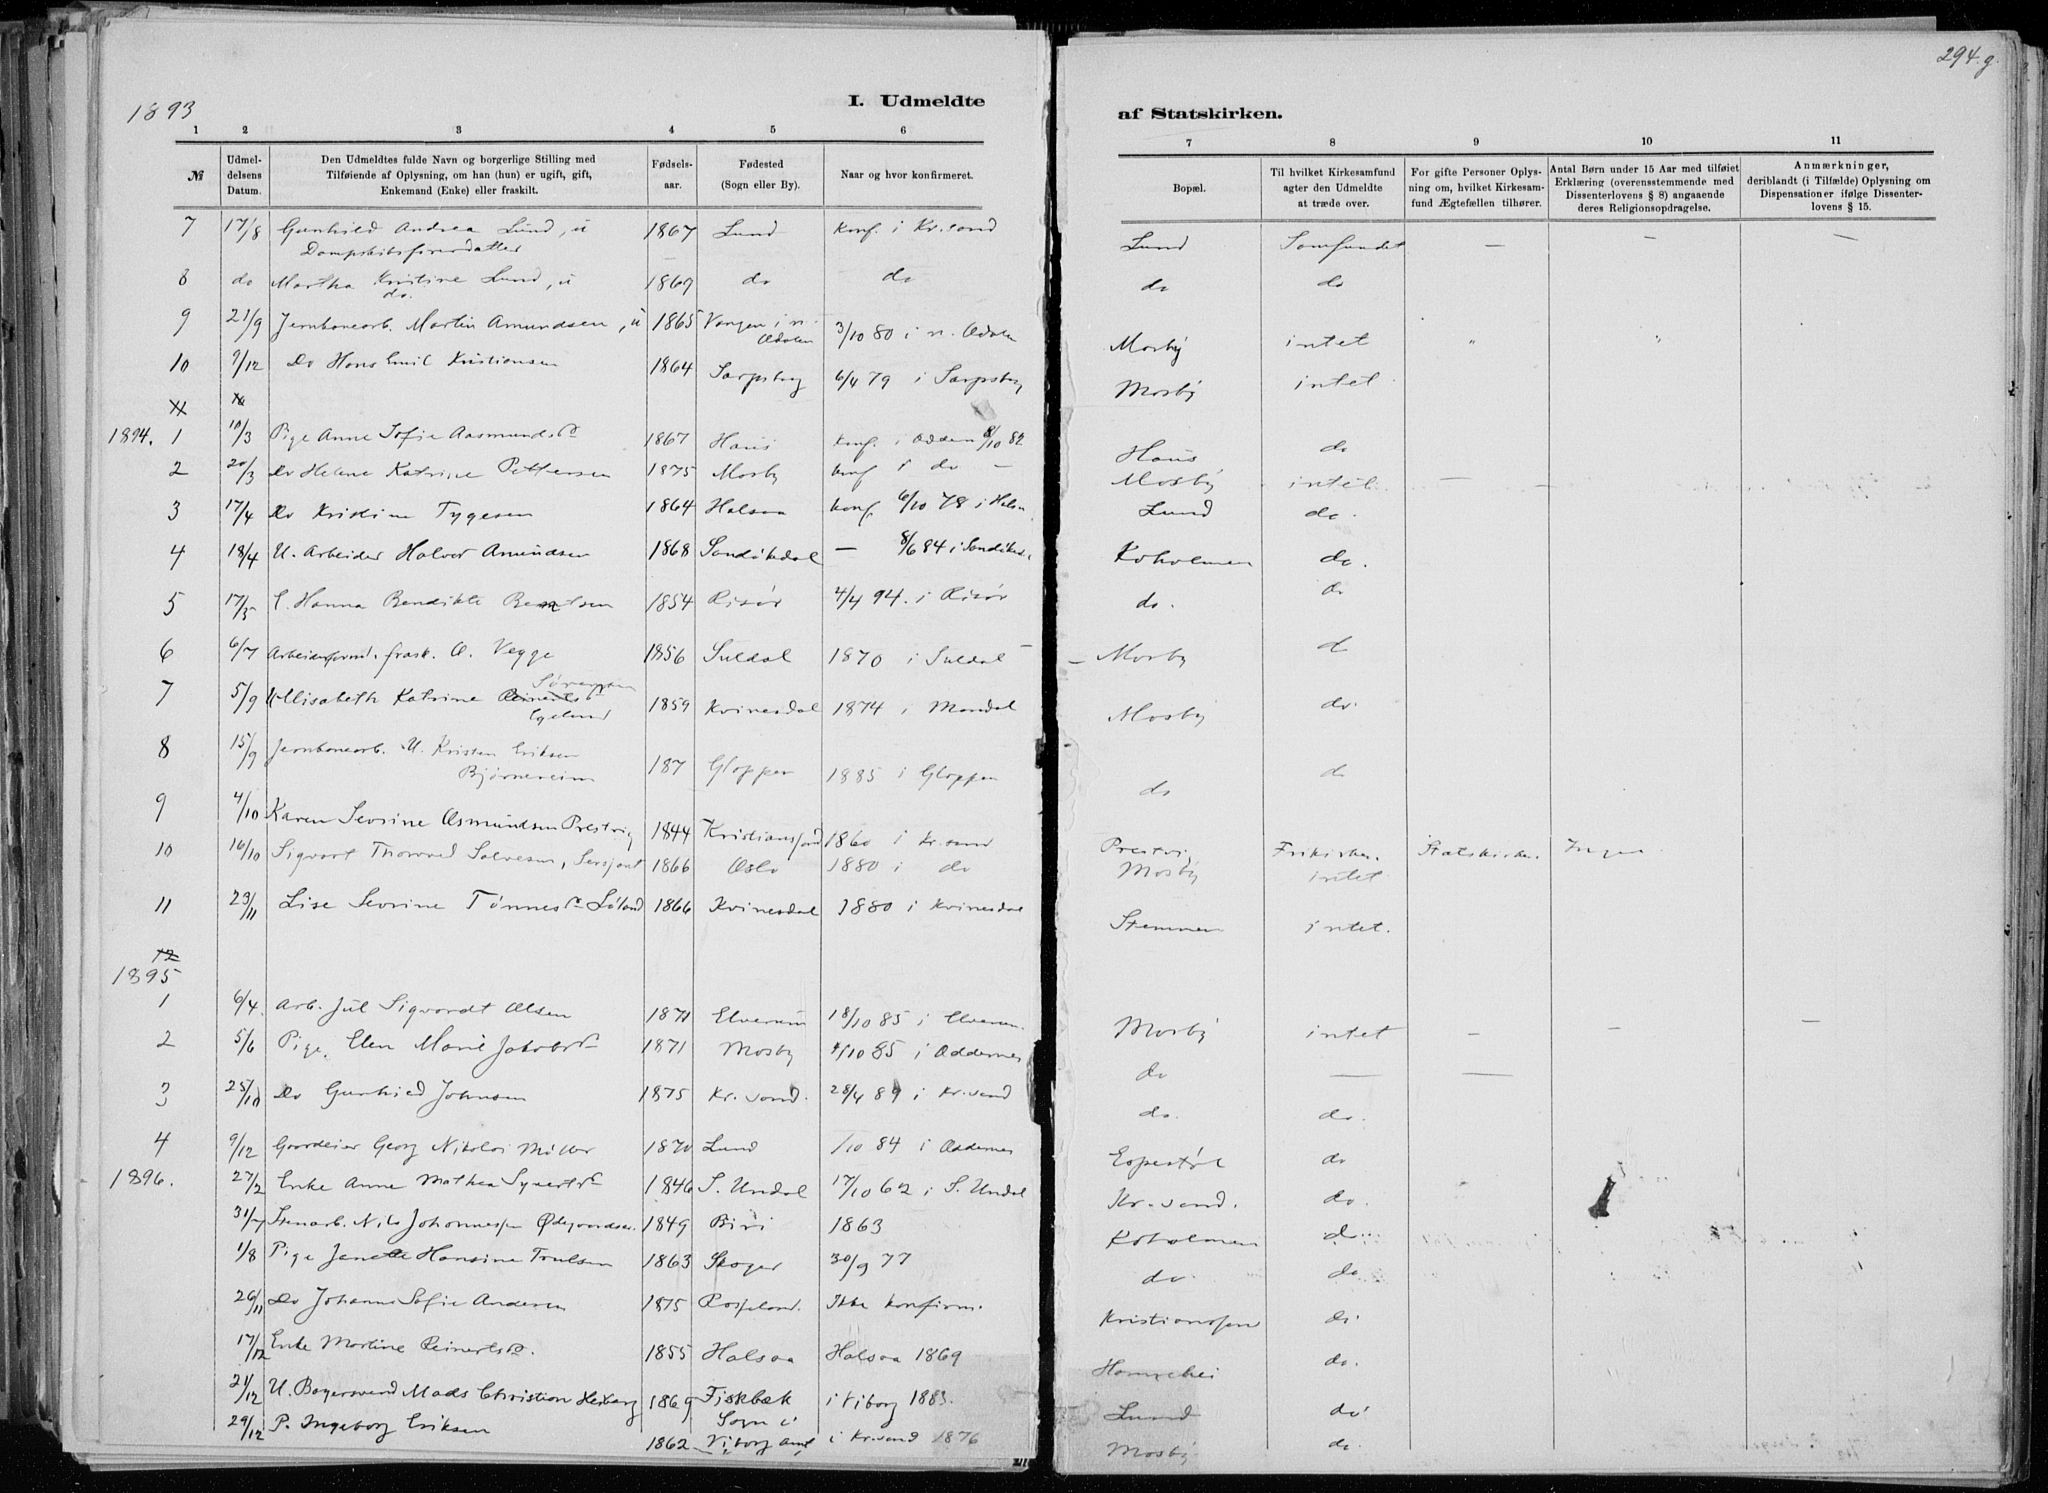 294.g.
1893
I. Udmeldte
af Statskirken.
1 2 3 4 5 6
7 8 9 10 11
№
Udmel-
delsens
Datum.
Den Udmeldtes fulde Navn og borgerlige Stilling med
Tilføiende af Oplysning, om han (hun) er ugift, gift,
Enkemand (Enke) eller fraskilt.
Fødsels-
aar.
Fødested
(Sogn eller By).
Naar og hvor konfirmeret.
Bopæl.
Til hvilket Kirkesamfund
agter den Udmeldte
at træde over.
For gifte Personer Oplys-
ning om, hvilket Kirkesam-
fund Ægtefællen tilhører.
Antal Børn under 15 Aar med tilføiet
Erklæring (overensstemmende med
Dissenterlovens § 8) angaaende
deres Religionsopdragelse.
Anmærkninger,
deriblandt (i Tilfælde) Oplysning om
Dispensationer ifølge Dissenter-
lovens § 15.
7 17/8 Gunhild Andrea Lund, u 1867 Lund konf. i Kr.sand Lund Samfundet — — —
Dampskibsførerdatter
8 do Martha Kristine Lund, u 1869 do do do do
do.
9 21/9 Jernbanearb. Martin Amundsen, u 1865 Vangen i n. 3/10 80 i n. Odalen Mosby intet " "
Odalen
10 9/12 Do Hans Emil Kristiansen 1864 Sarpsborg 6/4 79 i Sarpsborg Mosby intet
1894. 1 10/3 Pige Anne Sofie Aasmundsd 1867 Haus konf. i Oddern 8/10 82 Haus do
2 20/3 Do Helene Katrine Pettersen 1875 Mosby konf i do — Mosby intet — —
3 17/4 Do Kristine Tygesen 1864 Halsaa konf. 6/10 78 i Halsa Lund do
4 18/4 U. Arbeider Halvor Amundsen 1868 Sandökedal — 8/6 84 i Sandöked. Koholmen do.
5 17/5 E. Hanna Bendikte Berntsen 1854 Risør 4/4 94. i Risør do. do
6 6/7 Arbeiderform. frask. O. Vegge 1856 Suldal 1870 i Suldal — Mosby do
7 5/9 Elisabeth Katrine Reinertsd Sørensen 1859 Kvinesdal 1874 i Mandal Mosby do.
Egeland
8 15/9 Jernbanearb. U. Kristen Eriksen 187 Gloppen 1885 i Gloppen do do
Bjørnereim
9 4/10 Karen Sevrine Osmundsen Prestvig 1844 Kristiansand 1860 i Kr.sand Prestvig Frikirken. Statskirken. Ingen
10 16/10 Sigvart Thorvald Salvesen, Sersjant 1866 Oslo 1880 i do Mosby intet
11 23/11 Lise Sevrine Tønnesd. Løland 1866 Kvinesdal 1880 i Kvinesdal Stemmen intet.
12
1895
1 6/4. Arb. Jul Sigvardt Olsen 1871 Elverum 18/10 85 i Elverum. Mosby intet — — —
2 5/6 Pige, Elen Marie Jakobsd 1871 Mosby 4/10 85 i Oddernes do — —
3 25/10 Do Gunhild Johnsen 1875 Kr.sand. 28/4 89 i Kr.sand do. do.
4 9/12 Gaardeier Georg Nikolai Møller 1870 Lund /10 84 i Oddernes Eopestøl do
1896. 27/2 Enke Anne Mathea Syvertsd 1846 S. Undal 17/10 62 i S. Undal Kr.sand. do.
31/7 Stenarb. Nils Johannessen Ødegaardsen. 1849 Biri 1863 Koholmen do
1/8 Pige Janette Hansine Trulsen 1863 Skoger 30/9 77 do do
26/11 Do Johanne Sofie Andersen 1875 Rosseland. Ikke konfirm. Kristiansand do
17/12 Enke Martine Reinertsd. 1855 Halsaa Halsaa 1869 do.
21/12 U. Bagersvend Mads Christian Heiberg 1869 Fiskbæk i Viborg 1883. Lund do
Sogn i
29/12 P. Ingeborg Eriksen 1862 Viborg Amt i Kr.sand 1876 Mosby do.